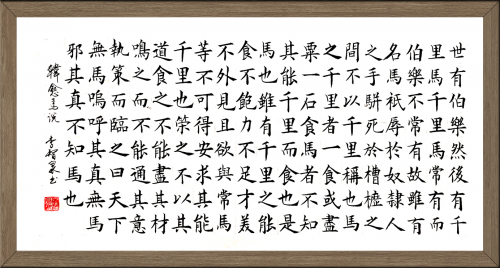 世有伯樂然後有千
里馬千里馬常有而
伯樂不常有故雖有
名馬衹辱於奴隸人
之手駢死於槽櫪之
間不以千里稱也馬
之千里者一食或盡
粟一石食馬者不知
其能千里而食也是
馬也雖有千里之能
食不飽力不足才美
不外見且欲與常馬
等不可得安求其能
千里也策之不以其
道食之不能盡其材
鳴之而不能通其意
執策而臨之曰天下
無馬嗚呼其真無馬
邪其真不知馬也
韓愈馬說